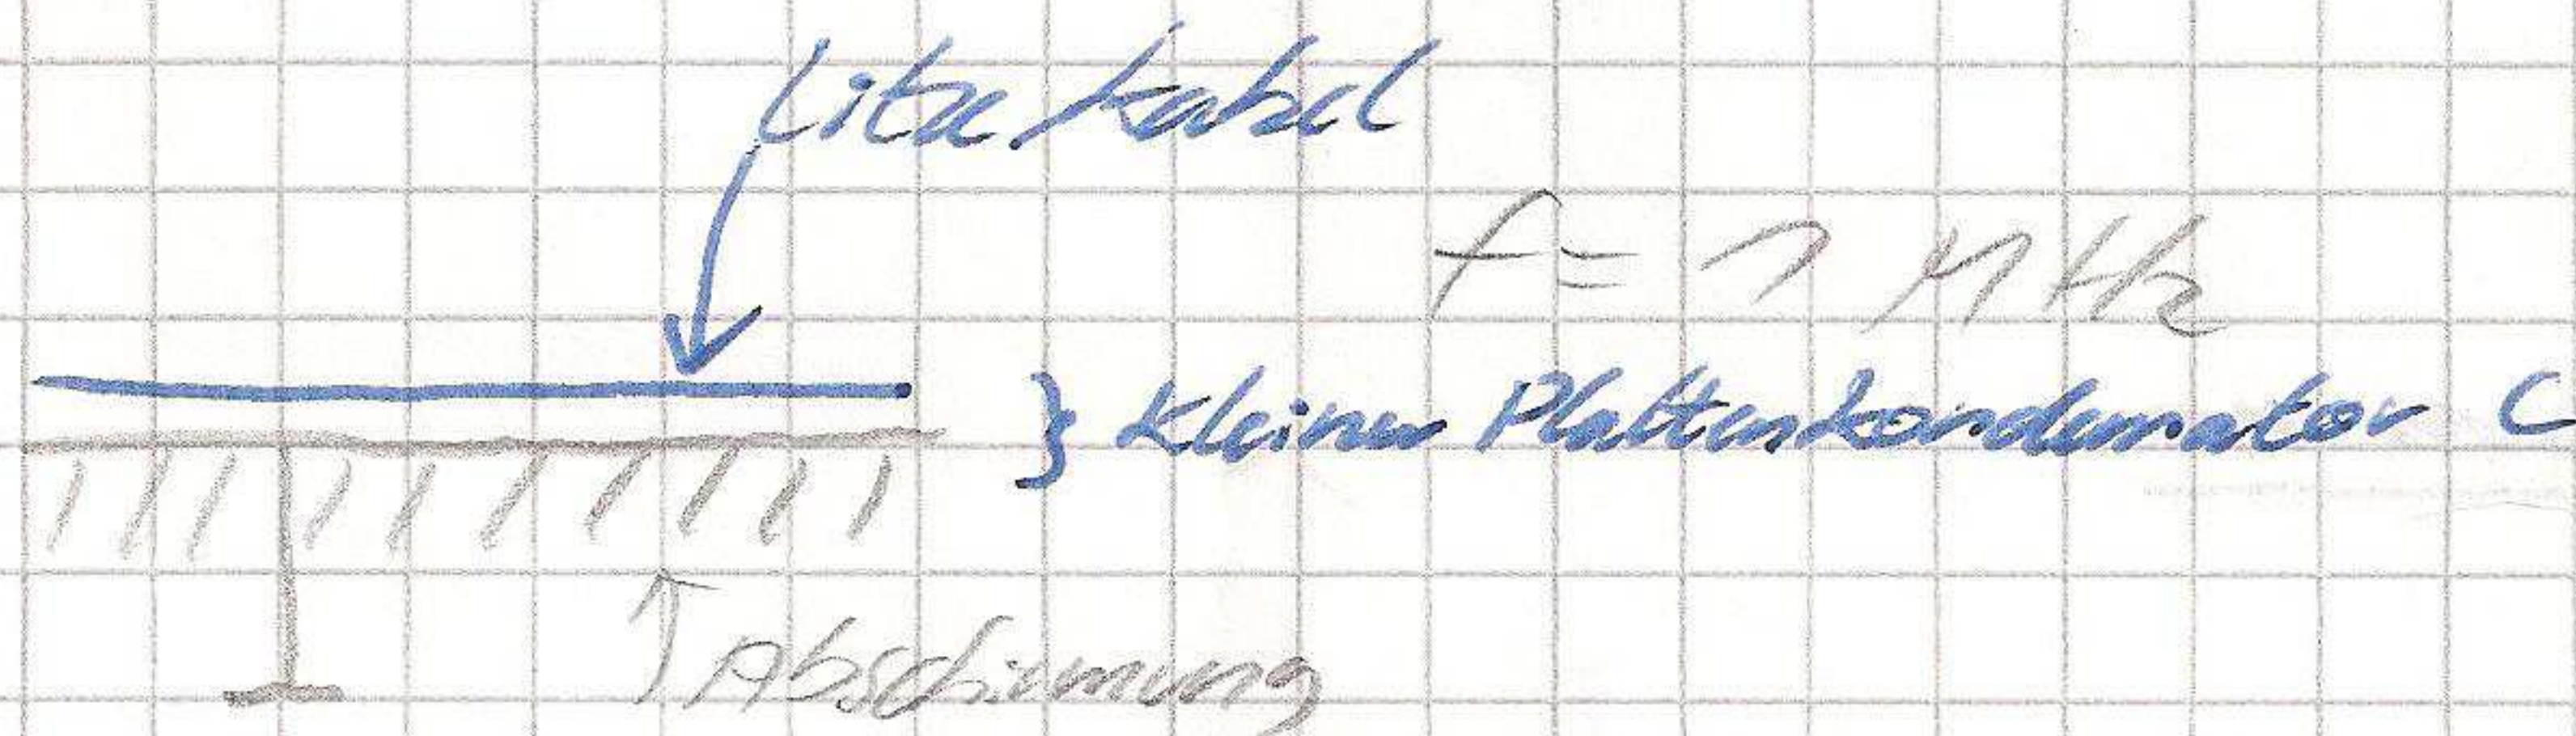 Litzekabel
f = 1 MHz
} Kleiner Plattenkondensator C
Abschirmung